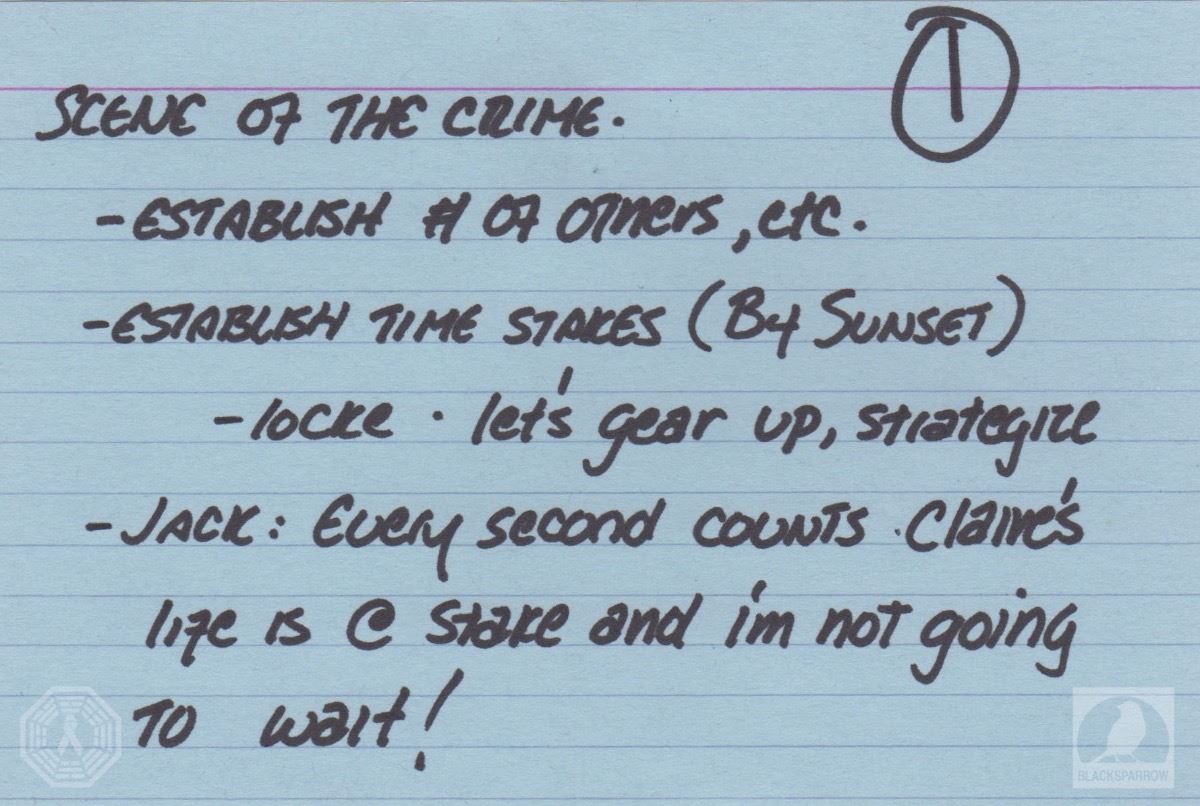 1
SCENE OF THE CRIME.
- ESTABLISH # OF OTHERS, etc.
- ESTABLISH TIME STAKES (BY SUNSET)
- locke · let's gear up, strategize
- JACK: Every second COUNTS. Claire's
life is @ stake and i'm not going
TO wait!
BLACKSPARROW